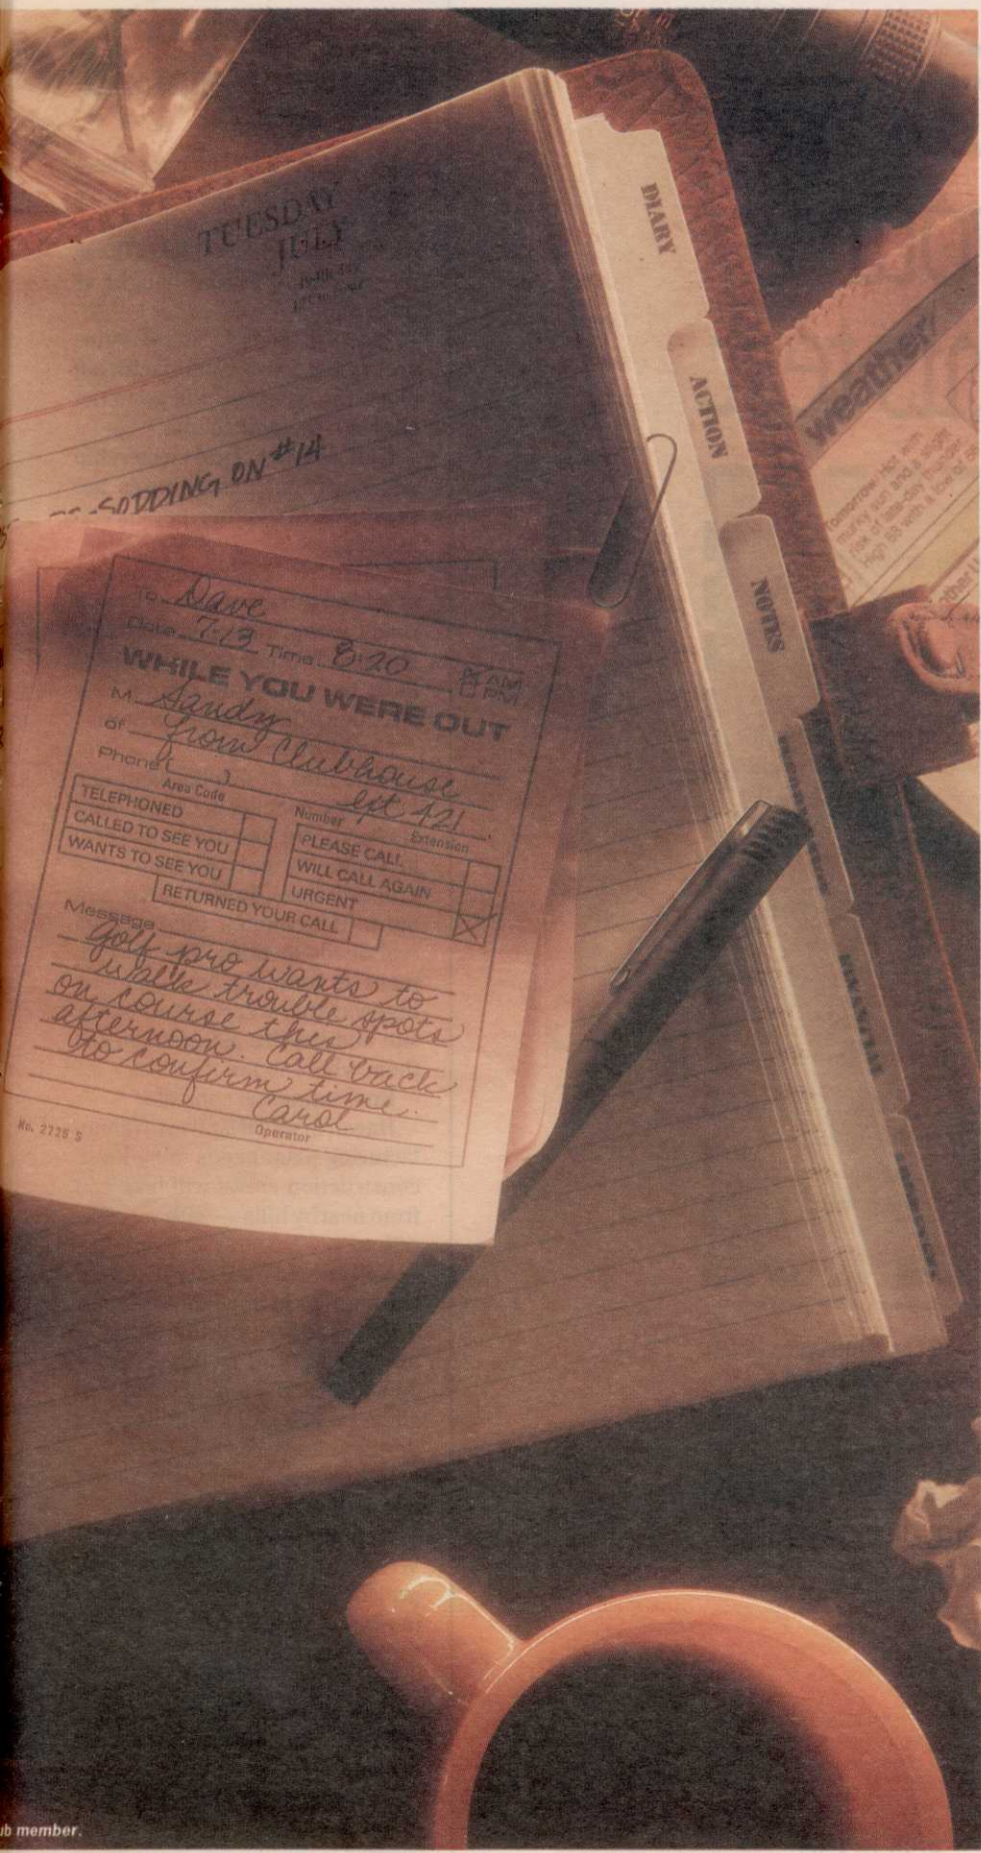 TUESDAY
JULY
DIARY
ACTION
NOTES
FINANCIAL
weather
Tomorrow: Hot with
murky sun and a slight
risk of late-day thunder.
High 88 with a low of
SODDING ON #14
To Dave
Date 7-13 Time 8:20 AM
PM
WHILE YOU WERE OUT
M Sandy
of from Clubhouse
Phone ( ) ext 421
Area Code Number Extension
TELEPHONED PLEASE CALL
CALLED TO SEE YOU WILL CALL AGAIN
WANTS TO SEE YOU URGENT
RETURNED YOUR CALL
Message
Golf pro wants to
walk trouble spots
on course this
afternoon. Call back
to confirm time.
Carol
Operator
No. 2725 S
ub member.